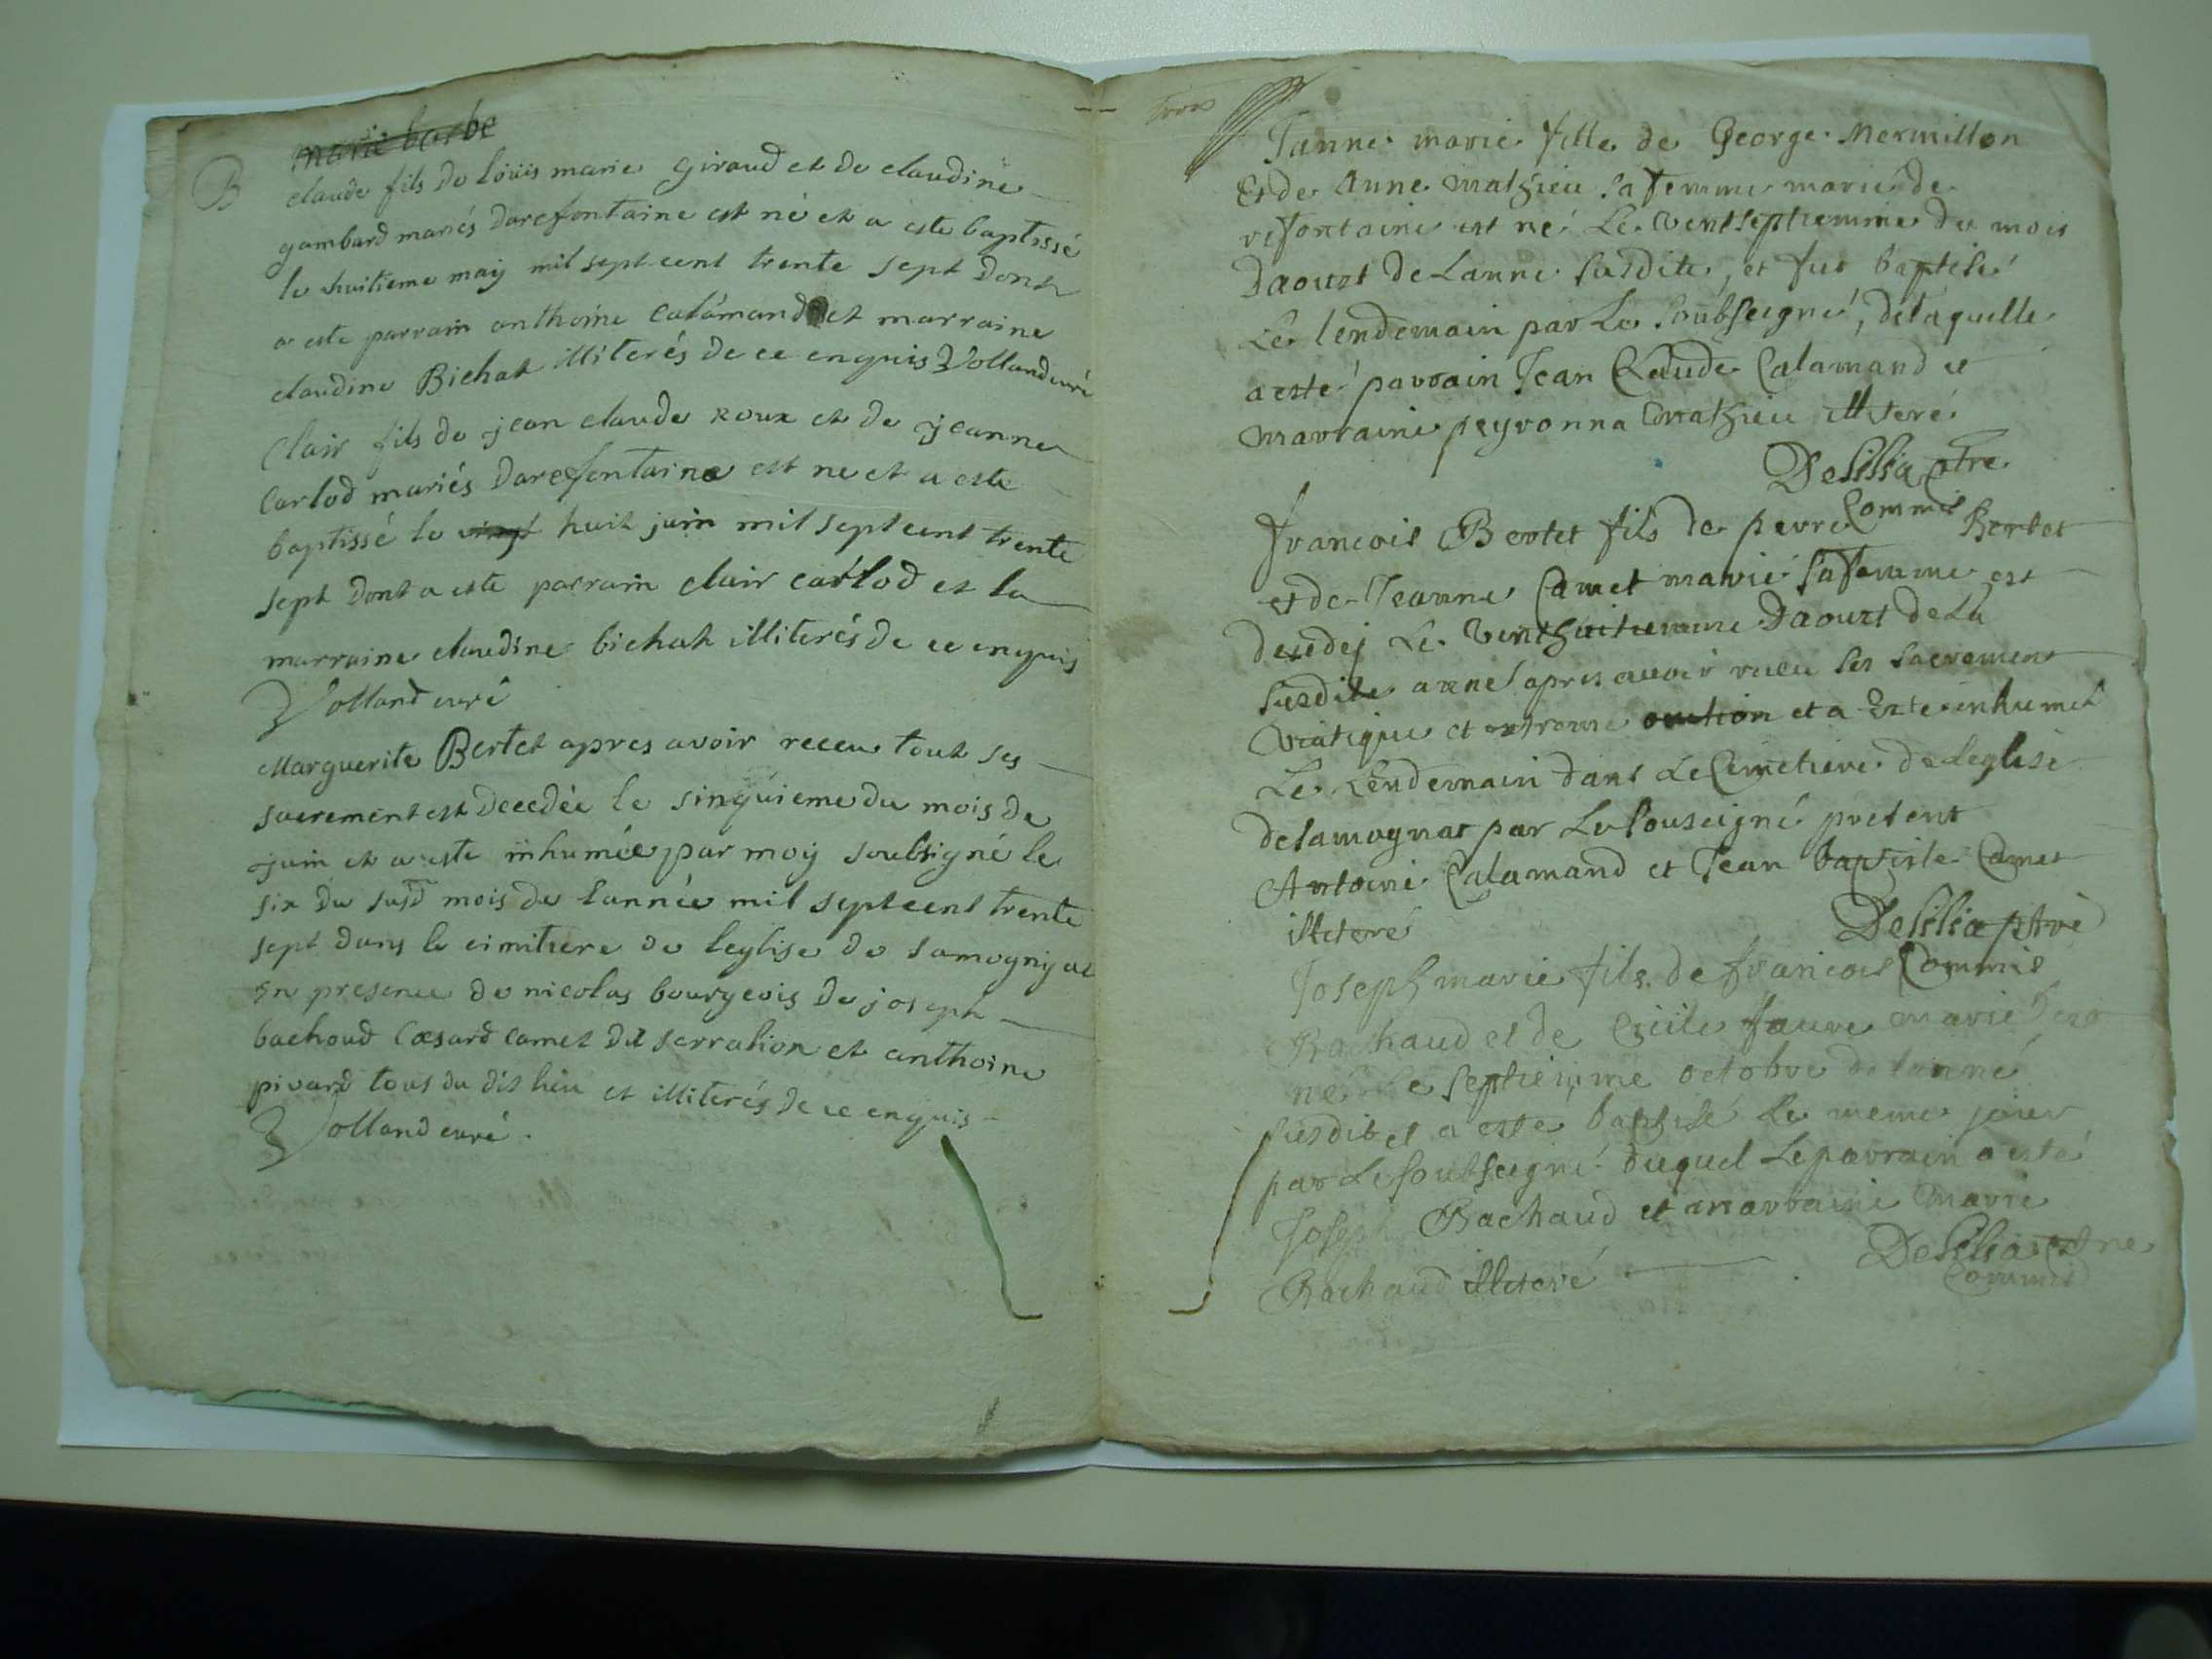 B
marie barbe
claude fils de loüis marie giraud et de claudine
gambard mariés darefontaine est né et a este baptissé
le huitieme maÿ mil sept cent trente sept dont
a este parrain anthoine calamand et marraine
claudine Bichat illiterés de ce enquis Volland curé
Clair fils de jean claude roux et de jeanne
Carlod mariés darefontaine est ne et a este
baptissé le vingt huit juin mil sept cent trente
sept dont a este parrain clair carlod et la
marraine claudine bichat illiterés de ce enquis
Volland curé
Marguerite Bertet apres avoir receu tout ses
sacrement est decedée le sinquieme du mois de
juin et a este inhumée par moÿ soubsigné le
six du susd mois de l'année mil sept cent trente
sept dans le cimitiere de leglise de samognÿat
en presence de nicolas bourgeois de joseph
bachoud Cæsard camet dit serralion et anthoine
pivard tous du dit lieu et illiterés de ce enquis
Volland curé.
trois
Janne marie fille de George Mermillon
Et de Anne mathieu sa femme marié de
refontaine est né Le ventseptiemme du mois
Daoust de Lanne susdite, et fut baptisé
Le lendemain par Le soubseigné, delaquelle
a esté parrain Jean Claude Calamand et
marraine peyronna mathieu illiteré
Desilia ptre
Commis
francois Bertet fils de pierre Bertet
et de Jeanne Camet marié sa femme est
decedej Le venthuitiemme Daoust de La
susdite anné apres avoir recu ses sacrement
viatique et extreme onction et a Este inhumet
Le Lendemain dans Le Cimetiere de Leglise
de samognat par Le souseigné present
Antoine Calamand et Jean baptiste Camet
illiteré
Desilia ptre
Commis
Joseph marie fils de francois
Bachaud et de Cecile faure marié
né Le septiemme octobre de lanné
susdit et a este baptisé Le meme jour
par Le soubseigné duquel Le parrain a esté
Joseph Bachaud et marraine marie
Bachaud illiteré
Desilia ptre
Commis